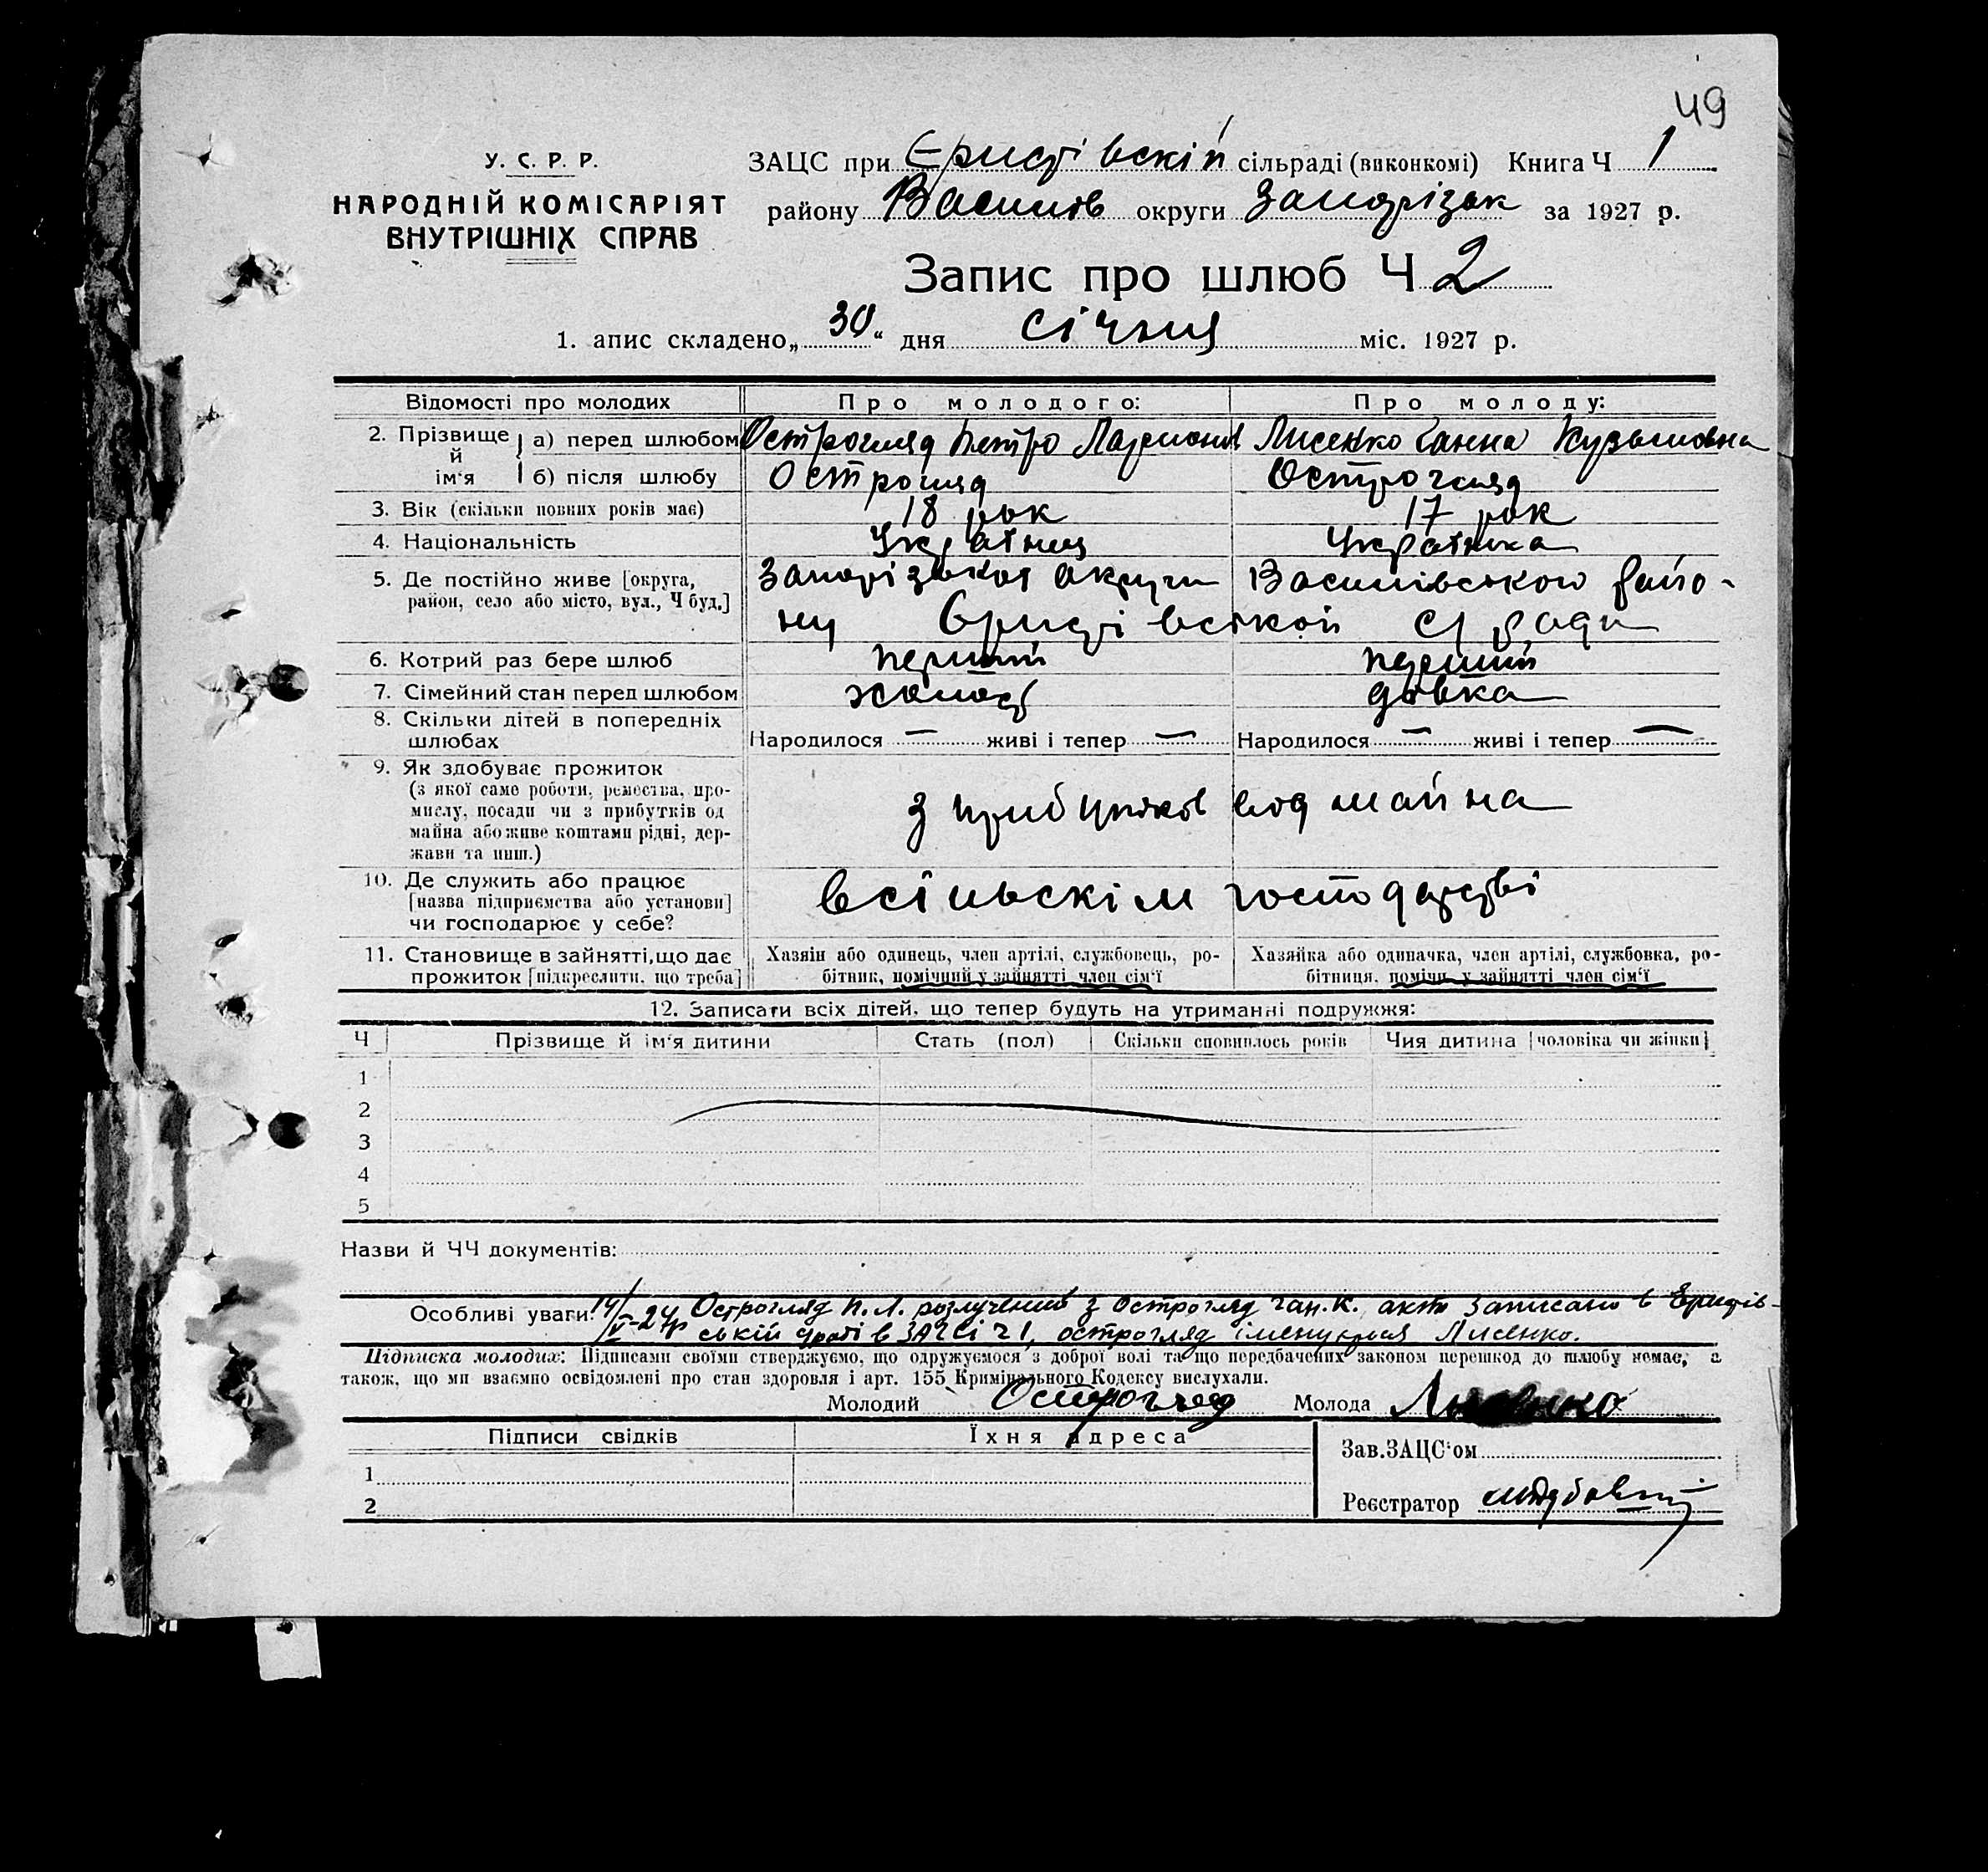 49
У. С. Р. Р.
НАРОДНІЙ КОМІСАРІЯТ
ВНУТРІШНІХ СПРАВ
ЗАЦС при Єристівскій сільраді (виконкомі) Книга Ч 1
району Василів округи Запорізьк за 1927 р.
Запис про шлюб Ч 2
1. апис складено „ 30 “ дня січня міс. 1927 р.
Відомості про молодих Про молодого: Про молоду:
2. Прізвище й ім'я а) перед шлюбом Острогляд Петро Ларионів Лисенко Ганна Кузьмовна
б) після шлюбу Острогляд Острогляд
3. Вік (скільки повних років має) 18 рок 17 рок
4. Національність Українец Українка
5. Де постійно живе [округа, Запорізької округи Василівського райо-
район, село або місто, вул., Ч буд.] ну Єристівської с/ради
6. Котрий раз бере шлюб перший перший
7. Сімейний стан перед шлюбом холост дівка
8. Скільки дітей в попередніх
шлюбах Народилося — живі і тепер — Народилося — живі і тепер —
9. Як здобуває прожиток
(з якої саме роботи, ремества, про-
мислу, посади чи з прибутків од з прибутків від майна
майна або живе коштами рідні, дер-
жави та инш.)
10. Де служить або працює
[назва підприємства або установи] всільскім господарстві
чи господарює у себе?
11. Становище в зайнятті, що дає Хазяїн або одинець, член артілі, службовець, ро- Хазяйка або одиначка, член артілі, службовка, ро-
прожиток [підкреслити, що треба] бітник, помічний у зайнятті член сім'ї бітниця, помічн. у зайнятті член сім'ї
12. Записати всіх дітей, що тепер будуть на утриманні подружжя:
Ч Прізвище й ім'я дитини Стать (пол) Скільки сповнилось років Чия дитина [чоловіка чи жінки]
1
2
3
4
5
Назви й ЧЧ документів:
Особливі уваги: Острогляд П.Л. розлучений з Острогляд Ган.К. акт записано в Єристів-
ській с/раді в ЗАГСі Ч 1, острогляд іменується Лисенко.
Підписка молодих: Підписами своїми стверджуємо, що одружуємося з доброї волі та що передбачених законом перешкод до шлюбу немає, а
також, що ми взаємно освідомлені про стан здоровля і арт. 155 Кримінального Кодексу вислухали.
Молодий Острогляд Молода Лисенко
Підписи свідків Їхня адреса
Зав. ЗАЦС'ом
1
2
Реєстратор